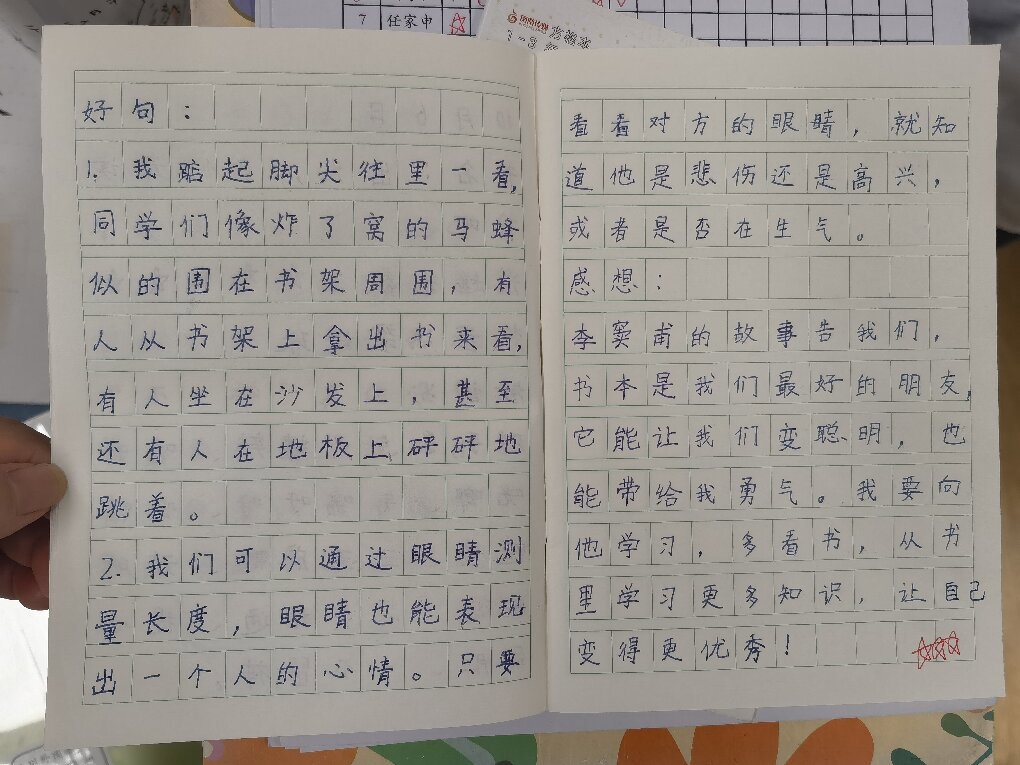 7 任家中
好句：
1.我踮起脚尖往里一看,
同学们像炸了窝的马蜂
似的围在书架周围，有
人从书架上拿出书来看,
有人坐在沙发上，甚至
还有人在地板上砰砰地
跳着。
2.我们可以通过眼睛测
量长度，眼睛也能表现
出一个人的心情。只要
看看对方的眼睛，就知
道他是悲伤还是高兴，
或者是否在生气。
感想：
李窦甫的故事告我们，
书本是我们最好的朋友,
它能让我们变聪明，也
能带给我勇气。我要向
他学习，多看书，从书
里学习更多知识，让自己
变得更优秀！